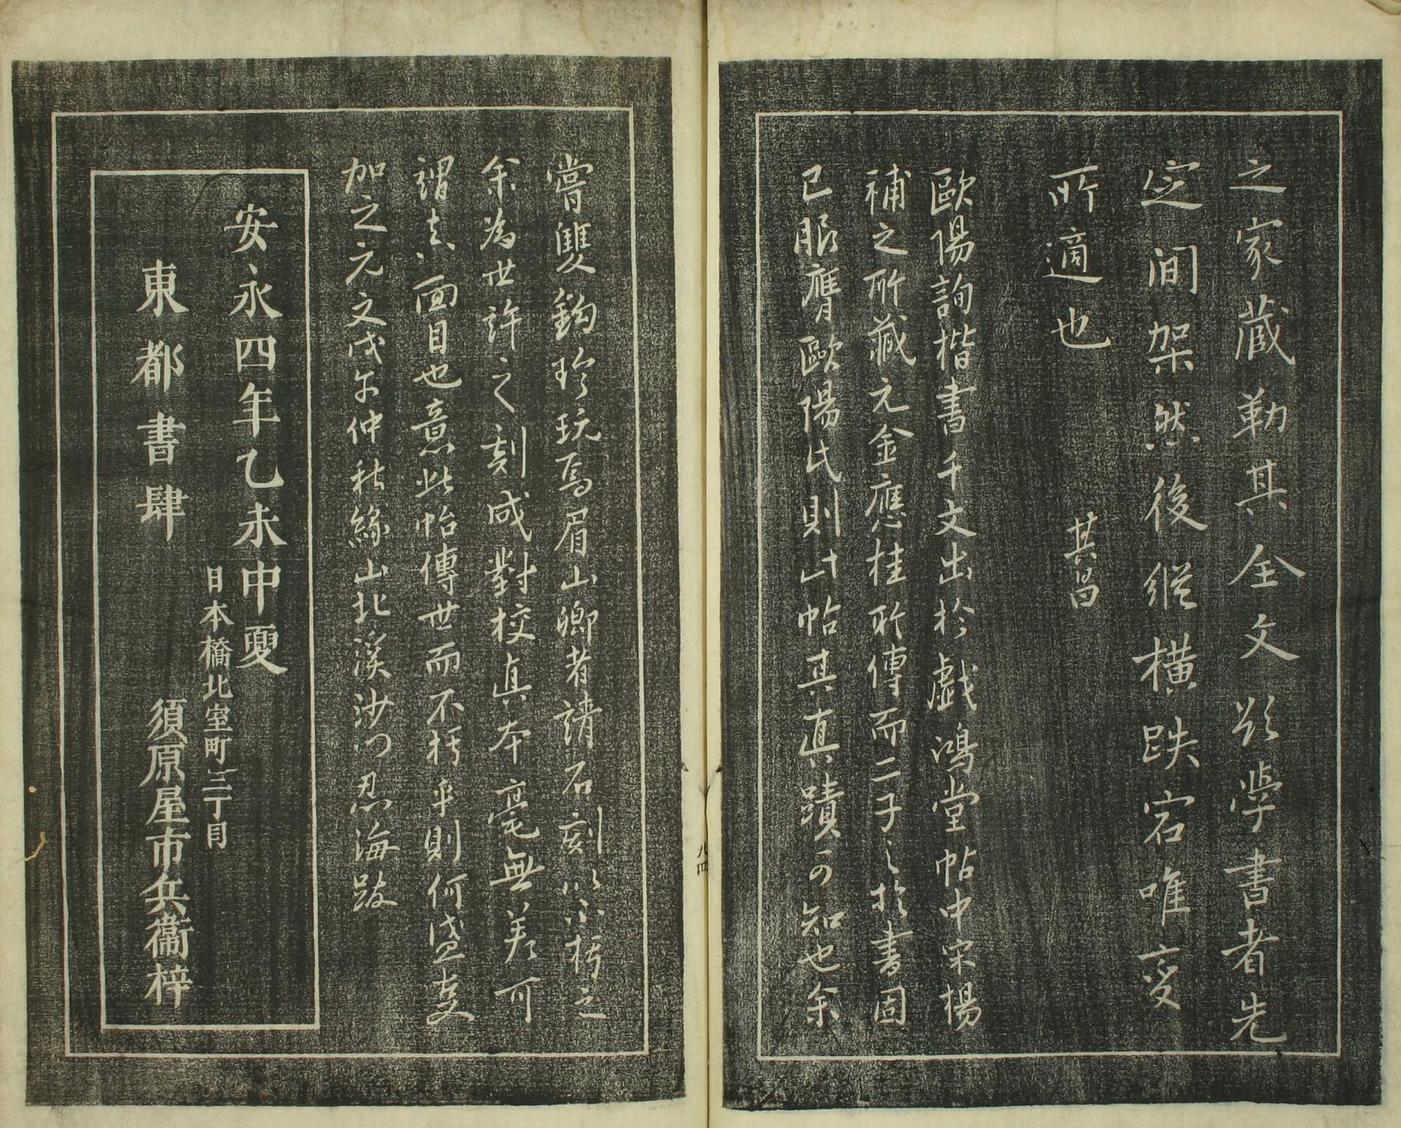 之家藏勒其全文欲學書者先
定間架然後縱橫跌宕唯變
所適也
其昌
歐陽詢楷書千文出於戲鴻堂帖中宋楊
補之所藏元金應桂所傳而二子之於書固
已服膺歐陽氏則此帖其真蹟可知也余
嘗雙鉤珍玩焉眉山卿者請石刻以不朽之
余為世許之刻成對校真本毫無差可
謂夫面目也意此帖傳世而不朽乎則何盛更
加之元文戊午仲秋緣山北溪沙門忍海跋
安永四年乙未中夏
日本橋北室町三丁目
東都書肆
須原屋市兵衞梓